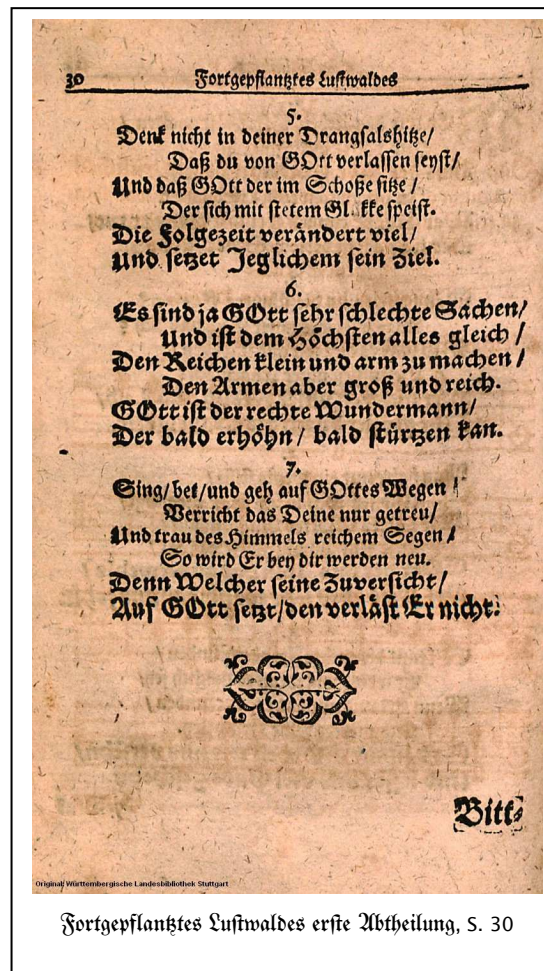 30 Fortgepflantztes Lustwaldes
5.
Denk nicht in deiner Drangsalshitze/
Daß du von GOtt verlassen seyst/
Und daß GOtt der im Schoße sitze /
Der sich mit stetem speist.
Die Folgezeit verändert viel/
Und setzet Jeglichem sein Ziel.
6.
Es sind ja GOtt sehr schlechte Sachen/
Und ist dem Höchsten alles gleich /
Den Reichen klein und arm zu machen /
Den Armen aber groß und reich.
GOtt ist der rechte Wundermann/
Der bald erhöhn / bald stürtzen kan.
7.
Sing/bet/und geh auf GOttes Wegen /
Verricht das Deine nur getreu/
Und trau des Himmels reichem Segen /
So wird Er bey dir werden neu.
Denn Welcher seine Zuversicht/
Auf GOtt setzt/den verläst Er nicht.
Bitt-
Original: Württembergische Landesbibliothek Stuttgart
Fortgepflantztes Lustwaldes erste Abtheilung, S. 30